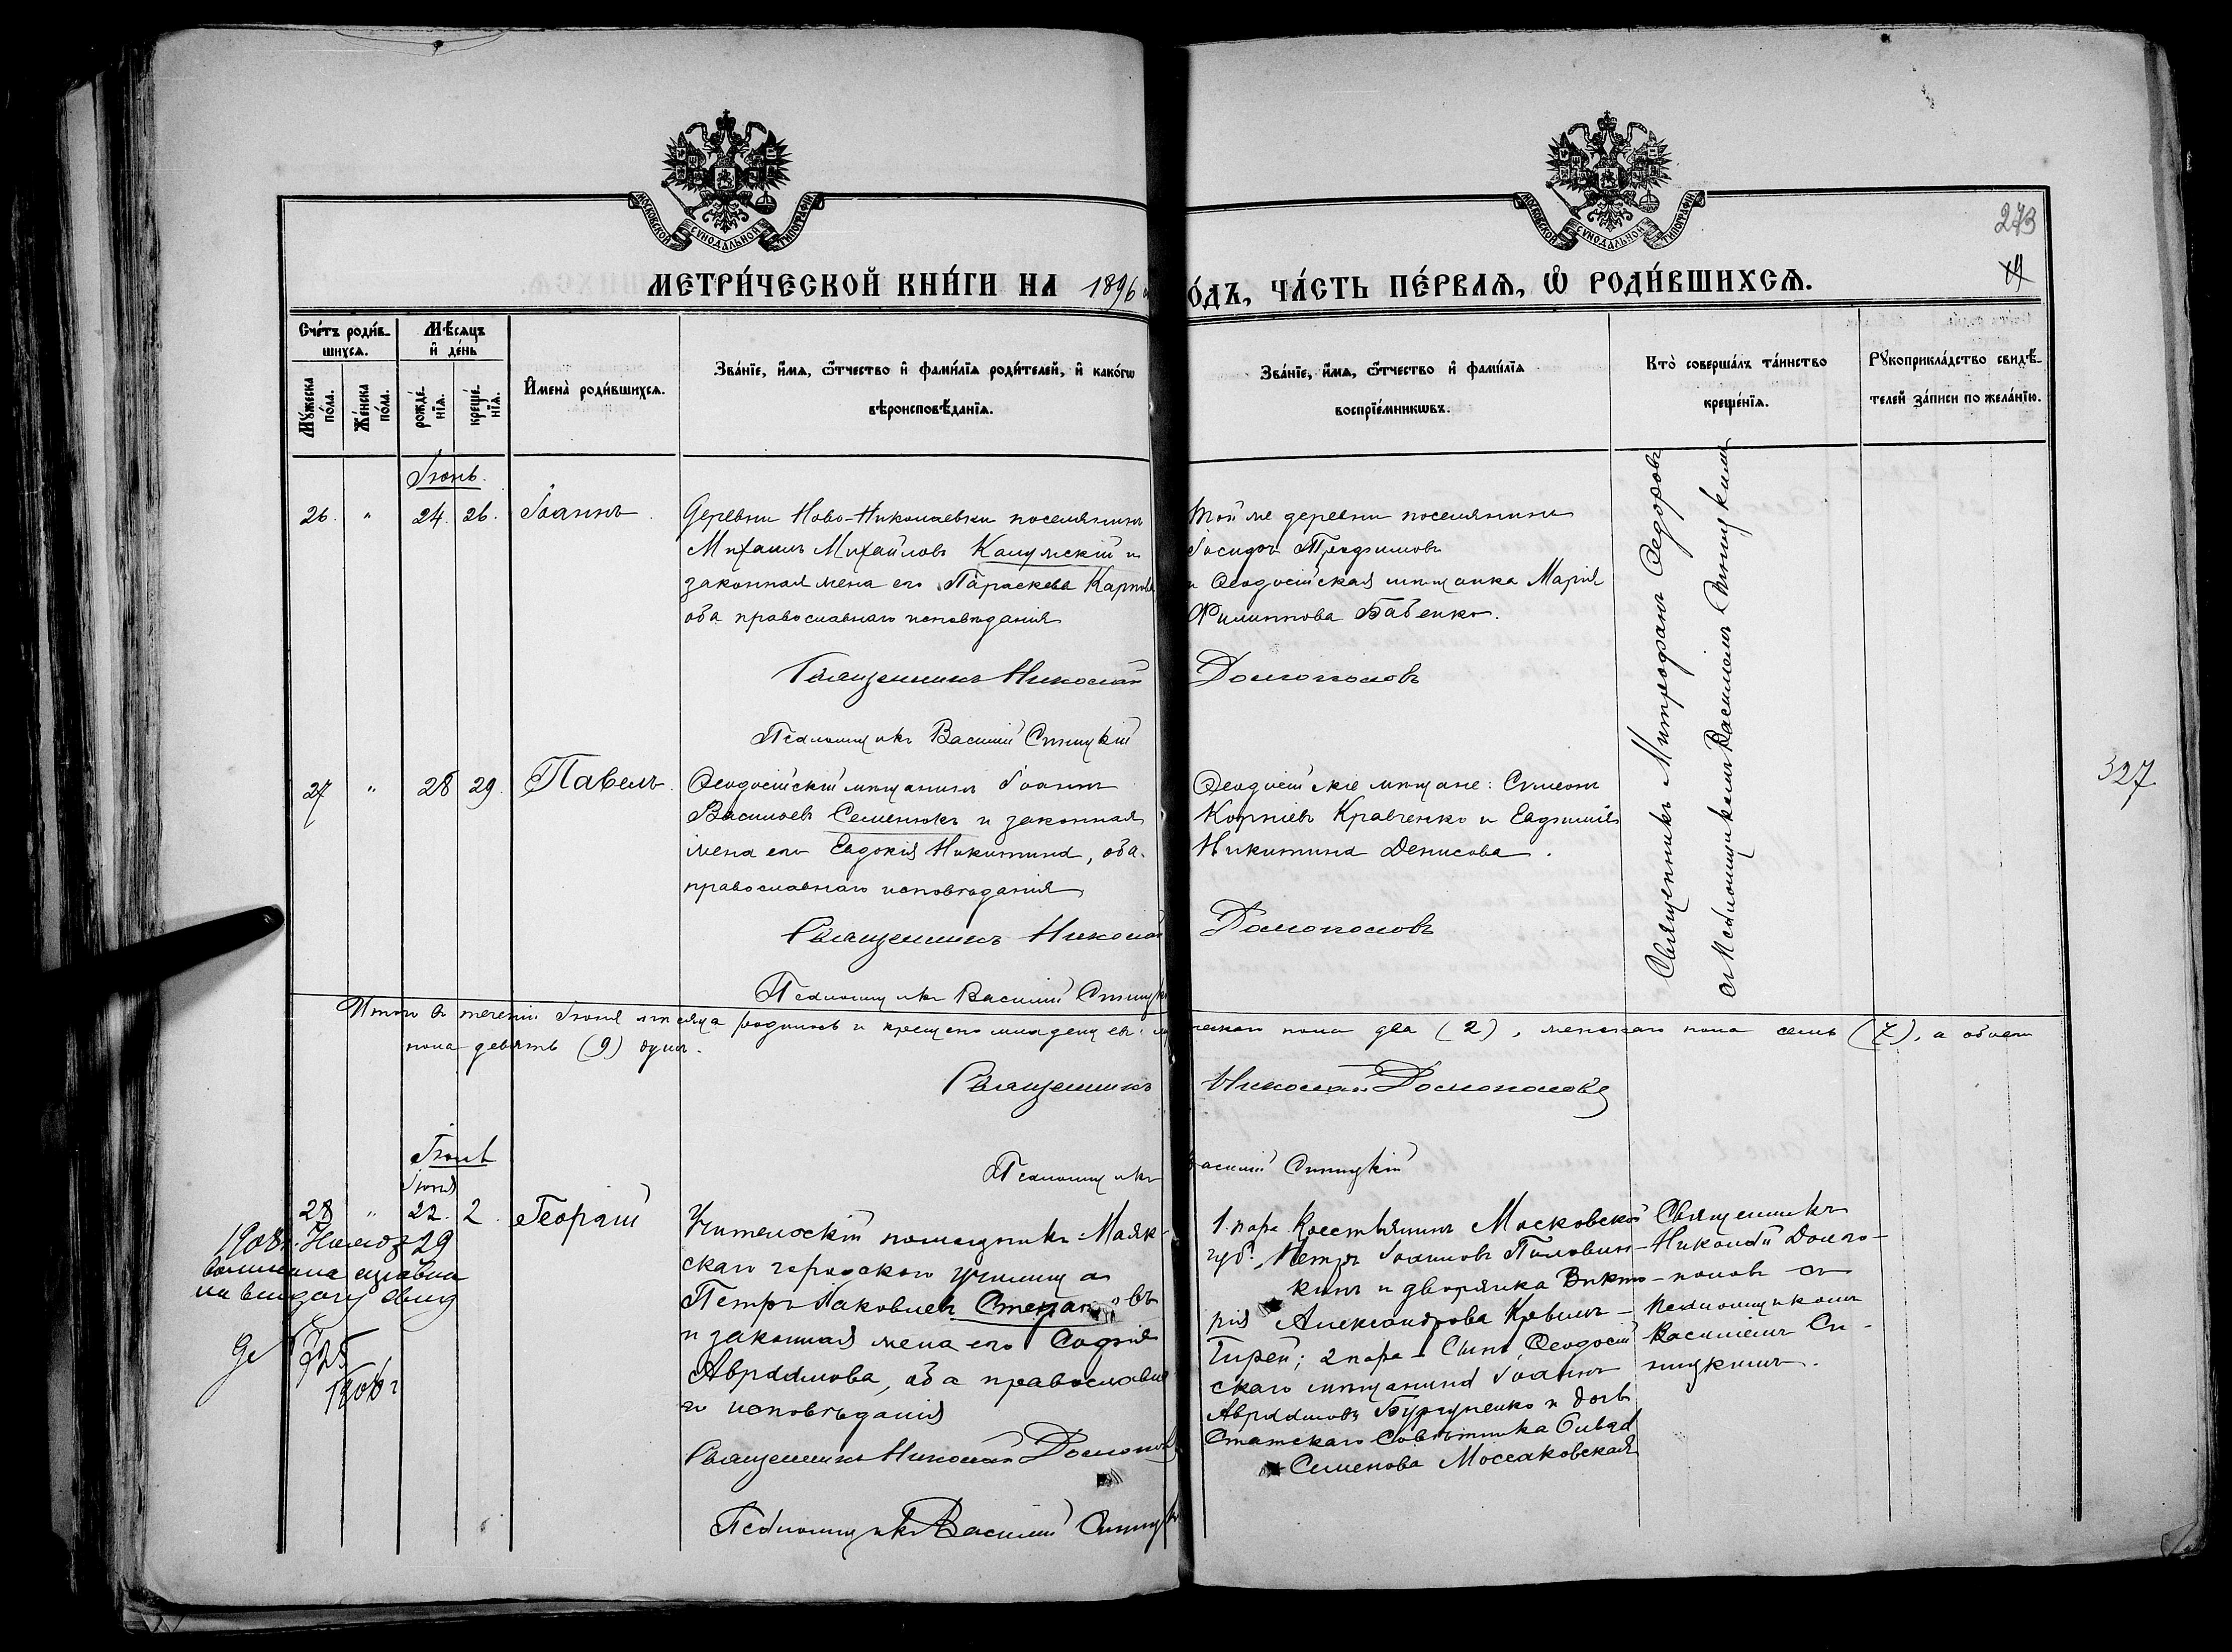 МОСКОВСКОЙ СѴНОДАЛЬНОЙ ТИПОГРАФІИ
МОСКОВСКОЙ СѴНОДАЛЬНОЙ ТИПОГРАФІИ
273
19
МЕТРИ́ЧЕСКОЙ КНИ́ГИ НА 1896
О́ДЪ, ЧА́СТЬ ПЕ́РВАѦ, Ѽ РОДИ́ВШИХСѦ.
Счётъ роди́в-
шихсѧ.
Мѣ́сѧцъ
и҆ де́нь
Мꙋ́жеска
по́ла.
Же́нска
по́ла.
рожде́-
нїѧ.
креще́-
нїѧ.
И҆мена̀ роди́вшихсѧ.
Зва́нїе, и҆́мѧ, ѻ҆́тчество и҆ фами́лїѧ роди́телей, и҆ како́гѡ
вѣроисповѣ́данїѧ.
Зва́нїе, и҆́мѧ, ѻ҆́тчество и҆ фами́лїѧ
воспрїе́мникѡвъ.
Кто̀ соверша́лъ та́инство
креще́нїѧ.
Рꙋкоприкла́дство свидѣ́-
телей за́писи по жела́нїю.
Іюнь.
26. " 24. 26. Іоаннъ.
Деревни Ново-Николаевки поселянинъ
Михаилъ Михайловъ и
законная жена его Параскева
оба православнаго исповѣданія
Священникъ Николай
Псаломщикъ Василій Синицкій
Той же деревни поселянинъ
и Ѳеодосійская мѣщанка Марія
Филиппова Бабенко.
Долгополовъ
Священникъ Митрофанъ Ѳедоровъ
съ Псаломщикомъ Василіемъ Синицкимъ
27 " 28 29. Павелъ.
Ѳеодосійскій мѣщанинъ Іоаннъ
Васильевъ Семенюкъ и законная
жена его Евдокія Никитина, оба
православнаго исповѣданія
Священникъ Николай
Псаломщикъ Василій
Ѳеодосійскіе мѣщане: Симеонъ
Корніевъ Кравченко и Евдокія
Никитина Денисова.
Долгополовъ
327
Итого въ теченіи Іюня мѣсяца родилось и крещено младенцевъ: пола два (2), женскаго пола семь (7), а обоего
пола девять (9) душъ.
Священникъ Николай Долгополовъ
Псаломщикъ Василій Синицкій
Іюль
Іюня
28 " 22. 2. Георгій
Учительскій помощникъ Маяк-
скаго городского училища
Петръ Іаковлевъ Степановъ
и законная жена его Софія
Авраамова, оба православна-
го исповѣданія
Священникъ Николай
Псаломщикъ Василій
1 пара Крестьянинъ Московской
губ. Петръ Іоанновъ Половин-
кинъ и дворянка Викто-
рія Александрова Крымъ-
Гирей; 2 пара - Сынъ Ѳеодосій-
скаго мѣщанина Іоаннъ
Авраамовъ и дочь
Статскаго Совѣтника
Семенова Моссаковская
Священникъ
Николай Долго-
половъ съ
псаломщикомъ
Василіемъ Си-
ницкимъ.
1908 г. 29
выписана справка
на выдачу
725